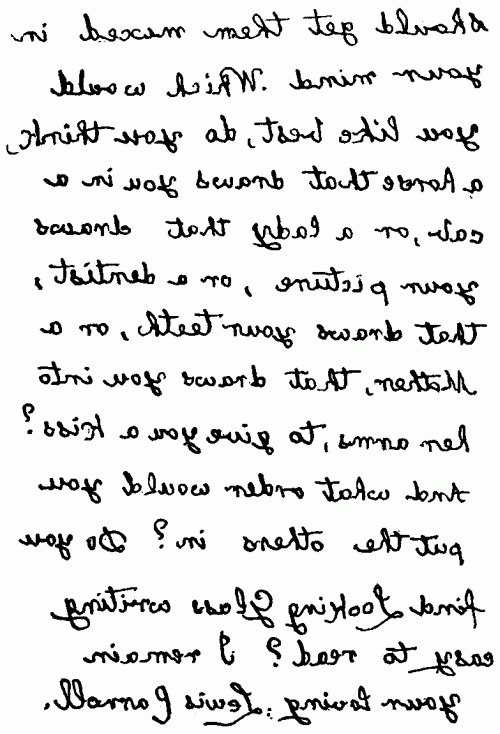 should get them muxed in
your mind. Which would
you like best, do you think,
a horse that draws you in a
cab, or, a lady that draws
your picture, or a dentist,
that draws your teeth, or a
Mother, that draws you into
her arms, to give you a kiss?
And what order would you
put the others in? Do you
find Looking Glass writing
easy to read? I remain
your loving, Lewis Carroll.